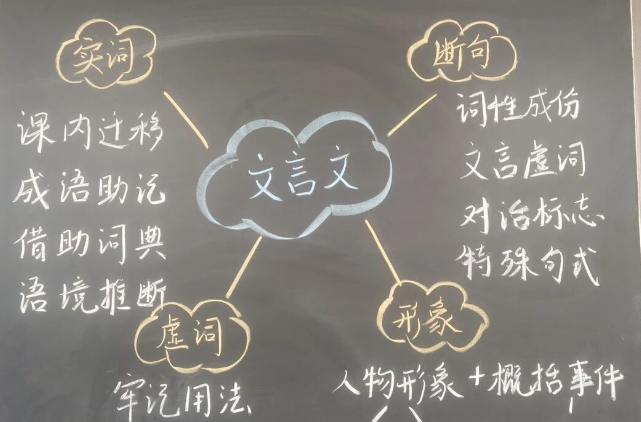 实词
课内迁移
成语助记
借助词典
语境推断
断句
词性成份
文言虚词
对话标志
特殊句式
文言文
虚词
牢记用法
形象
人物形象+概括事件